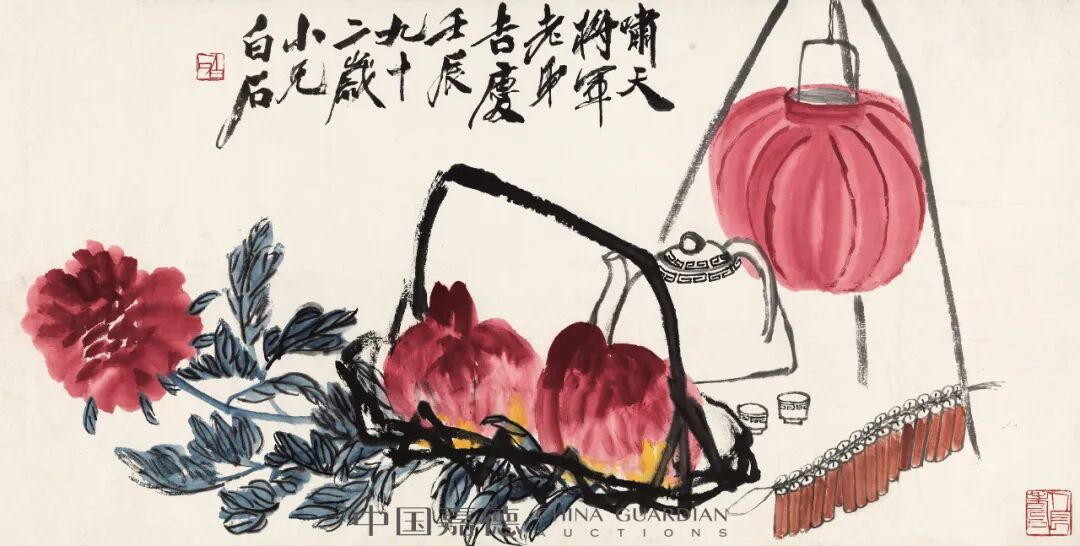 嘯天
將軍
老弟
吉慶
壬辰
九十
二歲
小兄
白石
中国嘉德 CHINA GUARDIAN
AUCTIONS